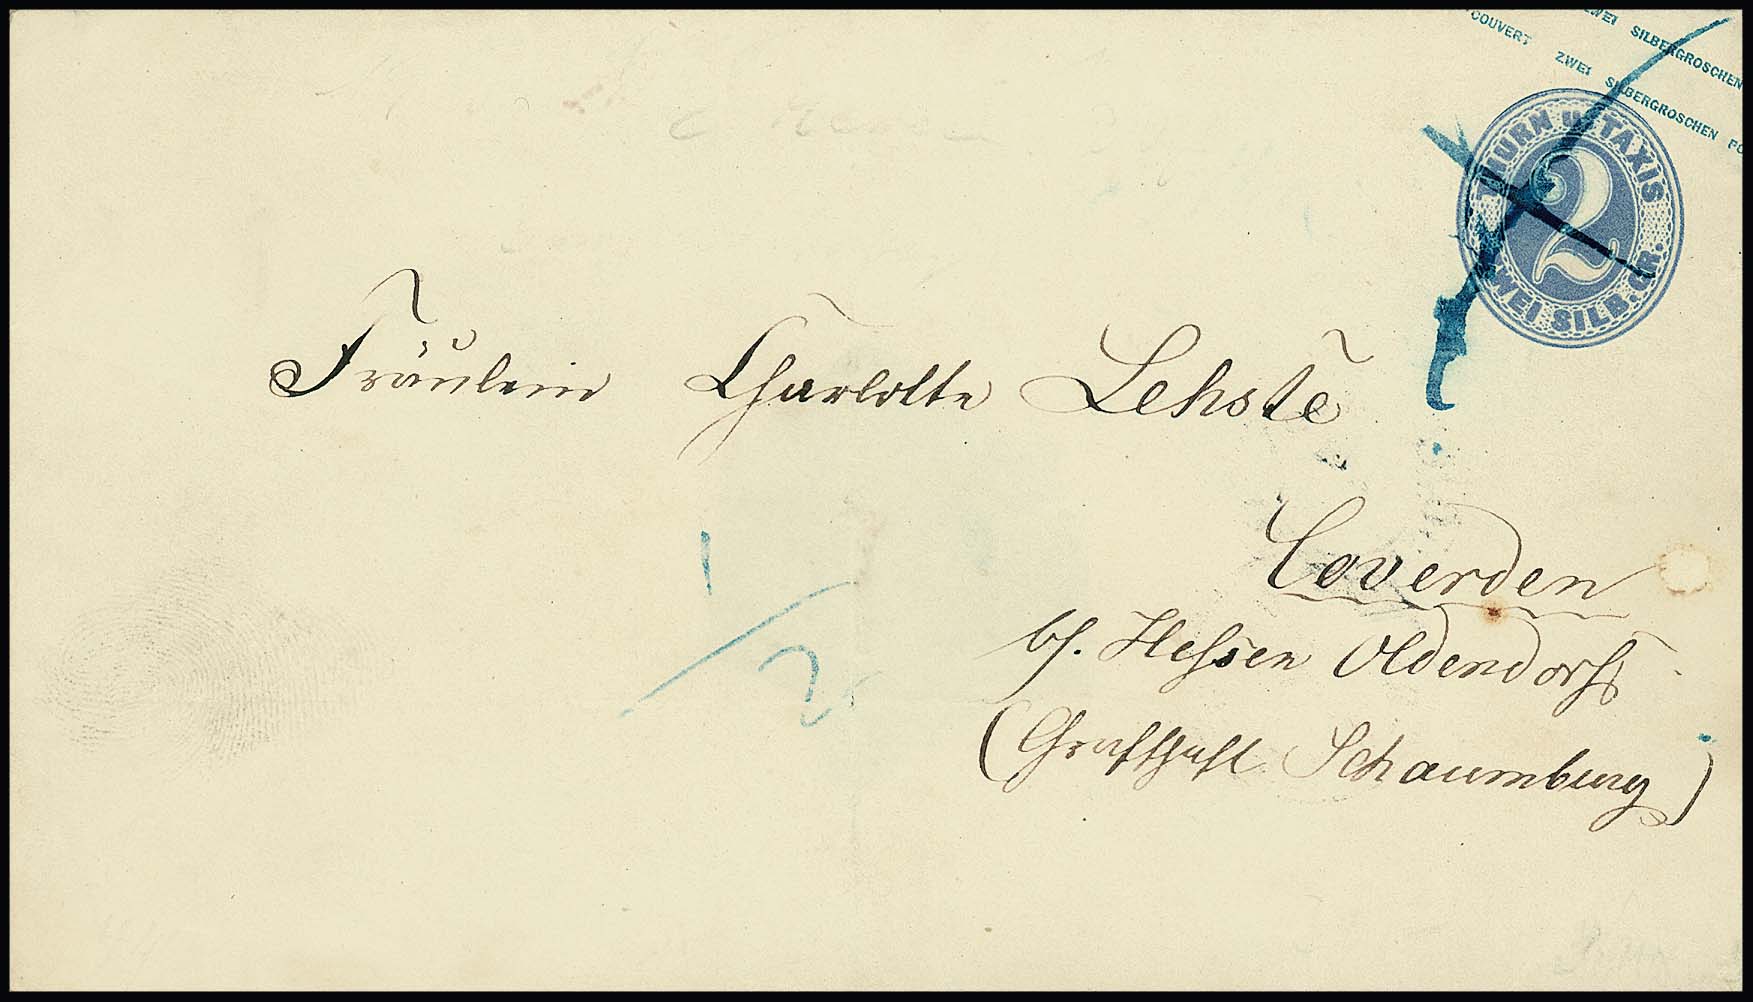 COUVERT ZWEI SILBERGROSCHEN
ZWEI SILBERGROSCHEN
THURN U. TAXIS
2
ZWEI SILB. GR.
Fräulein Charlotte Lehste
Coverden
bs. Hessen Oldendorf
(Grafschaft Schaumburg)
1/2